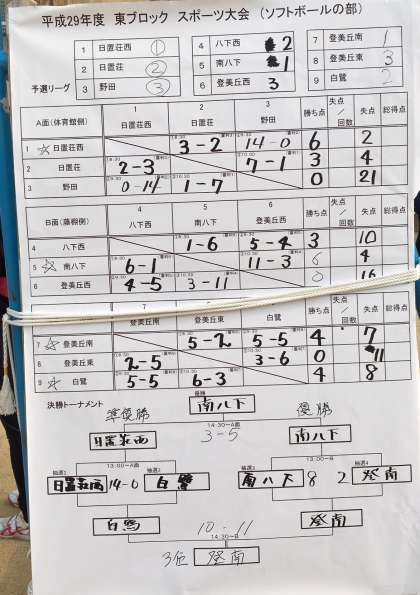 平成29年度 東ブロック スポーツ大会 (ソフトボールの部)
予選リーグ
1 日置荘西 ①
2 日置荘 ②
3 野田 ③
4 八下西 2
5 南八下 1
6 登美丘西 3
7 登美丘南 1
8 登美丘東 3
9 白鷺 2
A面(体育館側) 1 日置荘西 2 日置荘 3 野田 勝ち点 失点/回数 失点 総得点
1 ☆ 日置荘西 3-2 14-0 6 2
2 日置荘 2-3 7-1 3 4
3 野田 0-14 1-7 0 21
B面(藤棚側) 4 八下西 5 南八下 6 登美丘西 勝ち点 失点/回数 失点 総得点
4 八下西 1-6 5-4 3 10
5 ☆ 南八下 6-1 11-3 6 4
6 登美丘西 4-5 3-11 0 16
7 登美丘南 8 登美丘東 9 白鷺 勝ち点 失点/回数 失点 総得点
7 ☆ 登美丘南 5-2 5-5 4 7
8 登美丘東 2-5 3-6 0 11
9 ☆ 白鷺 5-5 6-3 4 8
決勝トーナメント
優勝
準優勝 南八下 優勝
14:30~A面
日置荘西 3-5 南八下
13:00~A面 13:00~B
抽選1 抽選2 抽選3 抽選4
日置荘西 14-0 白鷺 南八下 8 2 登南
白鷺 10-11 登南
14:30~B
3位 登南